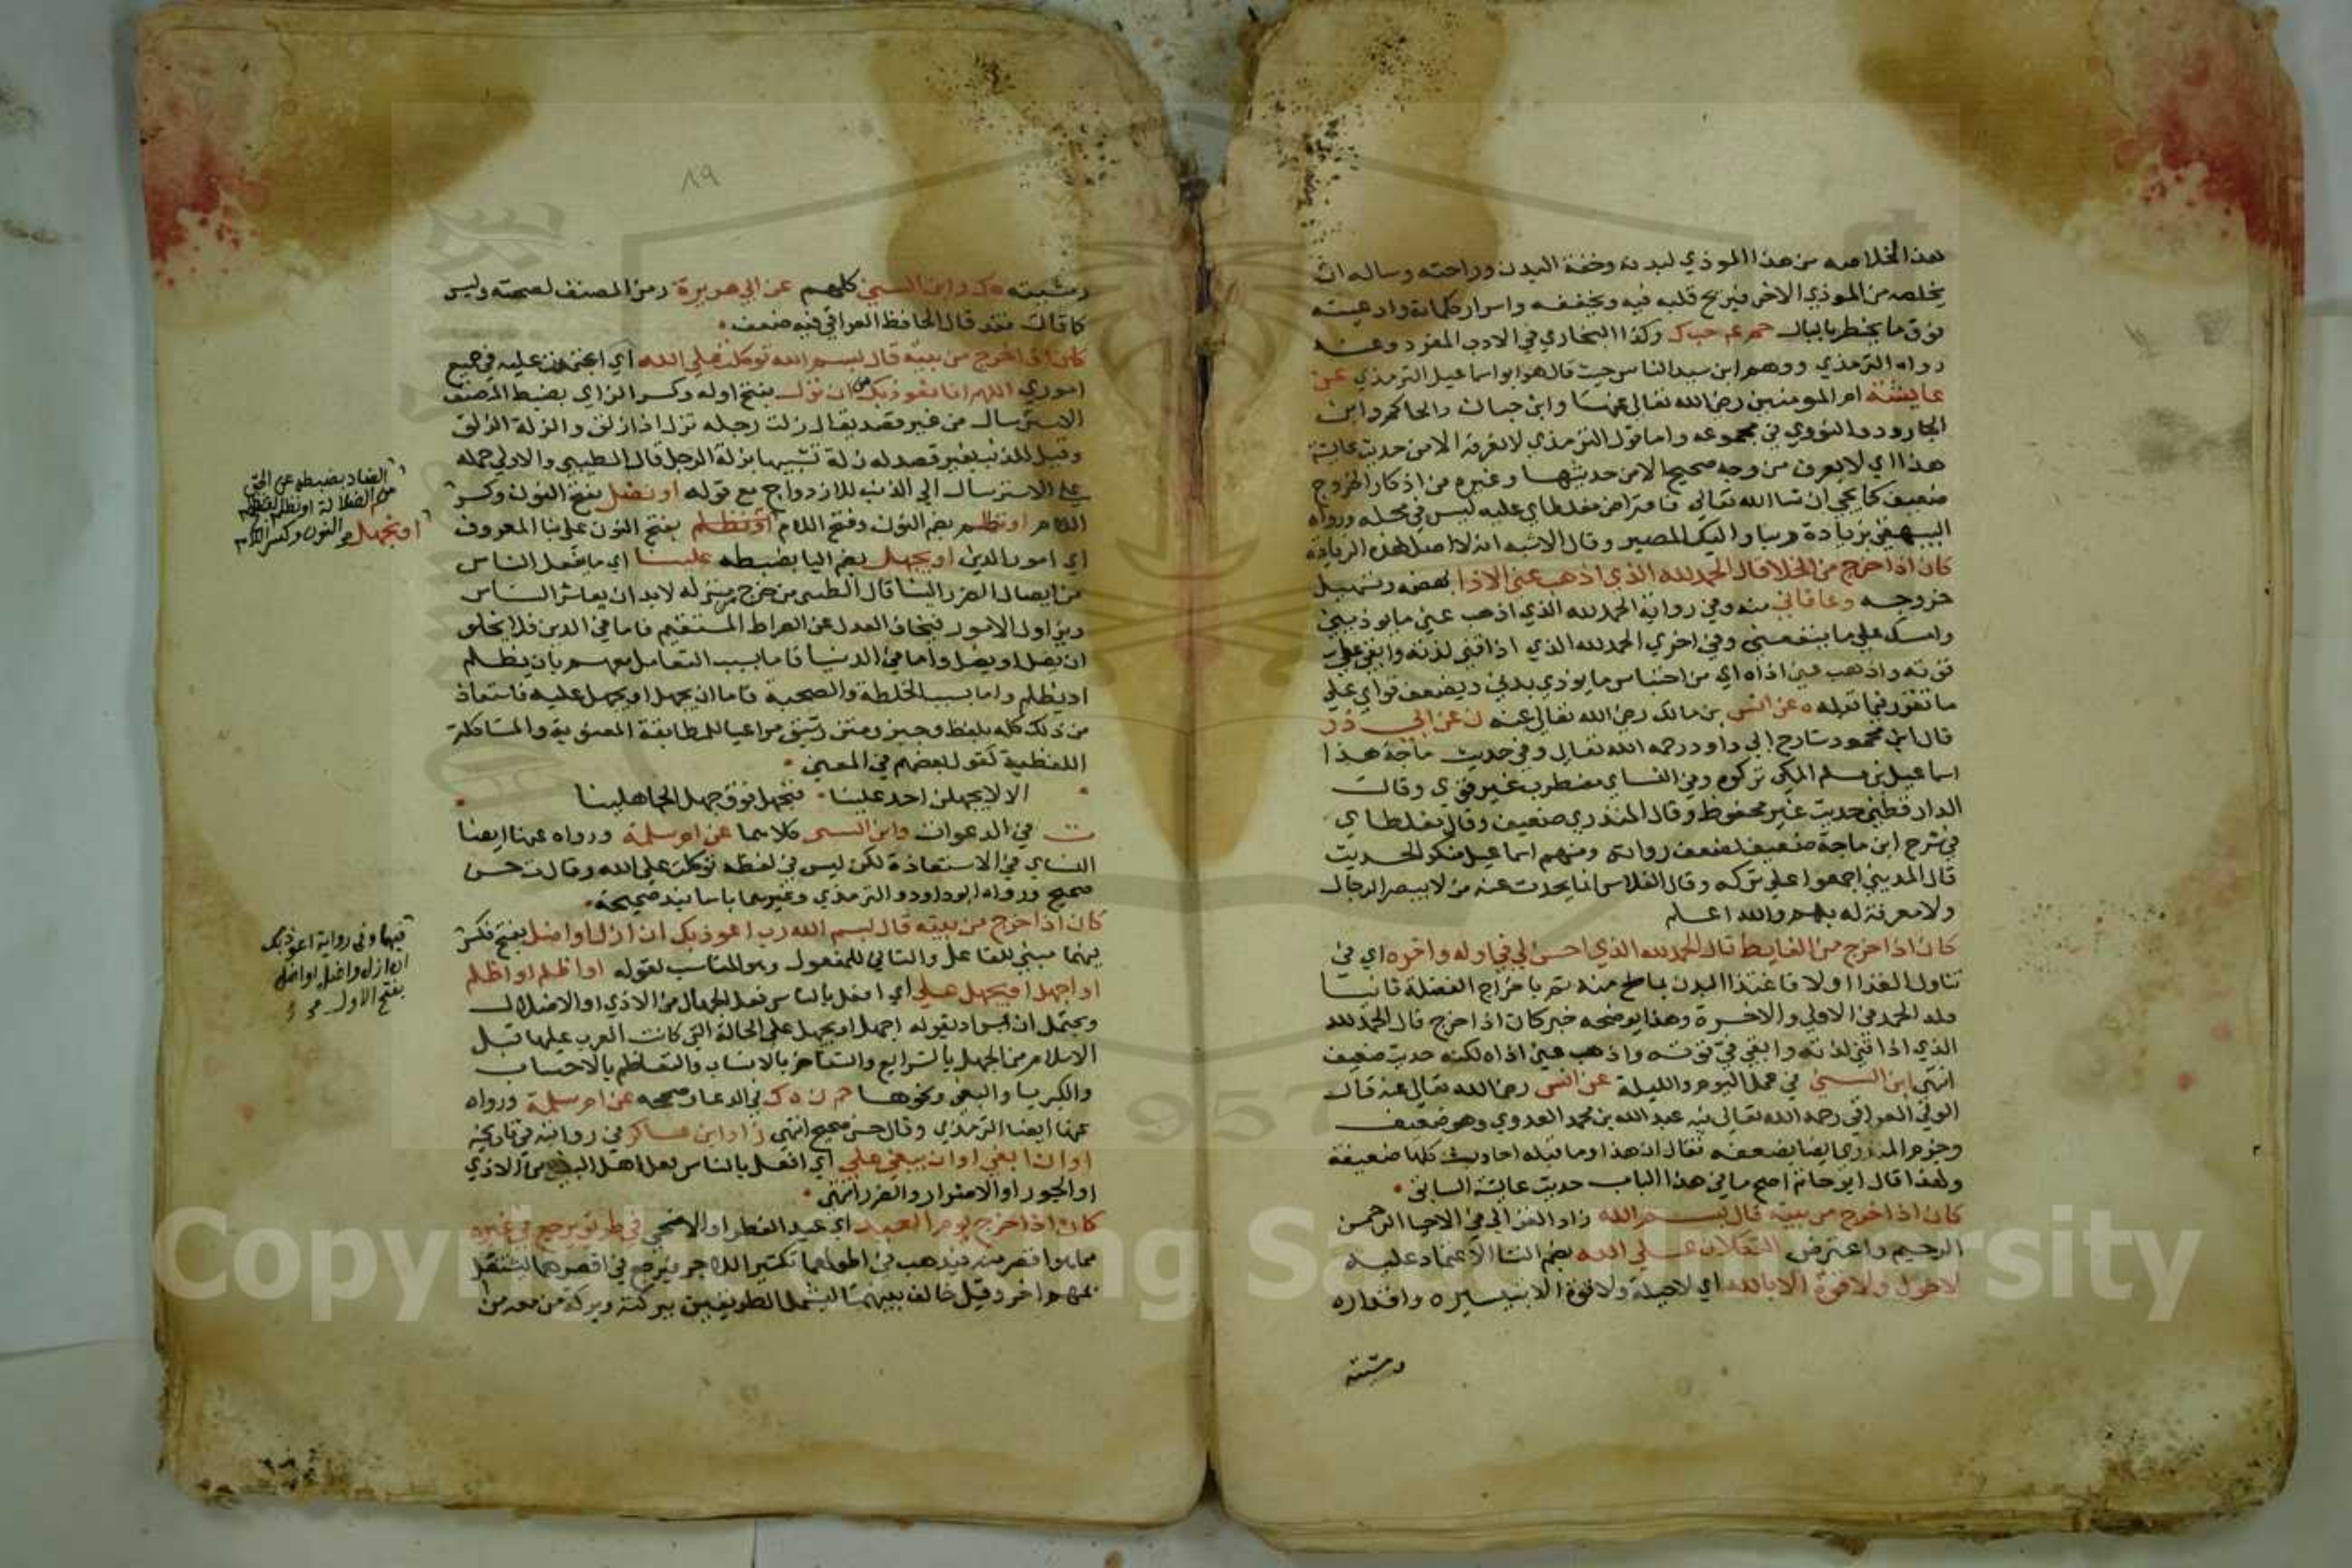 هذا الخلاصه من هذا الموذي لبدنه وخفة البدن وراحته وساله ان
يخلصه من الموذي الاخر فيريح قلبه فيه ويخففه واسرار كلماته وادعيته
فوق ما يخطر بالبال حم عم حب ك وكذا البخاري في الادب المفرد وعنه
رواه الترمذي ووهم ابن سيد الناس حيث قال هو ابو اسماعيل الترمذي عن
عايشة ام المومنين رضي الله تعالى عنها وابن حبان والحاكم وابن
الجارود والنووي في مجموعه واما قول الترمذي لا نعرفه الا من حديث عايشة
هذا اي لا يعرف من وجه صحيح الا من حديثها وغيره من اذكار الخروج
ضعيف كما يجي ان شا الله تعالى فاعتراض مغلطاي عليه ليس في محله ورواه
البيهقي بزيادة ربنا واليك المصير وقال الاشبه انه لا اصل لهذه الزيادة
كان اذا خرج من الخلا قال الحمد لله الذي اذهب عني الاذا بهضمه وتسهيل
خروجه وعافاني منه وفي رواية الحمد لله الذي اذهب عني ما يوذيني
وامسك علي ما ينفعني وفي اخري الحمد لله الذي اذاقني لذته وابقي علي
قوته واذهب عني اذاه اي من احتباس ما يوذي بدني ويضعف قواي علي
ما تقرر فيما قبله ه عن انس بن مالك رضي الله تعالى عنه ن عن ابي ذر
قال ابن محمود شارح ابي داود رحمه الله تعالى وفي حديث ماجة هذا
اسماعيل بن مسلم المكي تركوه وفي النساي مضطرب غير قوي وقال
الدارقطني حديث غير محفوظ وقال المنذري ضعيف وقال مغلطاي
في شرح ابن ماجة ضعيف لضعف رواته ومنهم اسماعيل منكر الحديث
قال المديني اجمعوا على تركه وقال الفلاس انما يحدث عنه من لا يبصر الرجال
ولا معرفة له بهم والله اعلم
كان اذا خرج من الغايط قال الحمد لله الذي احسن الي في اوله واخره اي في
تناول الغذا اولا فاغتذا البدن بما صلح منه ثم باخراج الفضلة ثانيا
فله الحمد في الاولى والاخرة وهذا يوضحه خبر كان اذا خرج قال الحمد لله
الذي اذاقني لذته وابقي في قوته واذهب عني اذاه لكنه حديث ضعيف
انتهى ابن السني في عمل اليوم والليلة عن انس رضي الله تعالى عنه قال
الولي العراقي رحمه الله تعالى فيه عبد الله بن محمد العدوي وهو ضعيف
وجزم المنذري ايضا بضعفه فقال ان هذا وما قبله احاديث كلها ضعيفة
ولهذا قال ابو حاتم اصح ما في هذا الباب حديث عايشة السابق
كان اذا خرج من بيته قال بسم الله زاد الغزالي في الاحيا الرحمن
الرحيم واعترض التكلان علي الله بضم التا الاعتماد عليه
لا حول ولا قوة الا بالله اي لا حيلة ولا قوة الا بتيسيره واقداره
ومشيته
٨٩
ومشيته ه ك وابن السني كلهم عن ابي هريرة رمز المصنف لصحته وليس
كما قال فقد قال الحافظ العراقي فيه ضعف
كان اذا خرج من بيته قال بسم الله توكلت علي الله اي اعتمدت عليه في جميع
اموري اللهم انا نعوذ بك من ان نزل بفتح اوله وكسر الزاي بضبط المصنف
الاسترسال من غير قصد يقال زلت رجله تزل اذا زلق والزلة الزلق
وقيل للذنب بغير قصد له زلة تشبيها بزلة الرجل قال الطيبي والاولى حمله
علي الاسترسال الي الذنب للازدواج مع قوله او نضل بفتح النون وكسر
الضاد بضبطه عن الحق
من الضلالة
او نجهل
اللام او نظلم بضم النون وفتح اللام او نظلم بفتح النون علي بنا المعروف
اي امور الدين او يجهل بضم اليا بضبطه علينا اي ما يفعل الناس
من ايصال الضرر الينا قال الطيبي من خرج من منزله لا بد ان يعاشر الناس
ويزاول الامور فيخاف العدل عن الصراط المستقيم فاما في الدين فلا يخلو
ان يضل او يضل واما في الدنيا فاما بسبب التعامل معهم بان يظلم
او يظلم واما بسبب الخلطة والصحبة فاما ان يجهل او يجهل عليه فاستعاذ
من ذلك كله بلفظ وجيز ومتن رشيق مراعيا للمطابقة المعنوية والمشاكلة
اللفظية كقول بعضهم في المعني
الا لا يجهلن احد علينا فنجهل فوق جهل الجاهلينا
ت في الدعوات وابن السني كلاهما عن ام سلمة ورواه عنها ايضا
النساي في الاستعاذة لكن ليس في لفظه توكلت علي الله وقال ت حسن
صحيح ورواه ابو داود والترمذي وغيرهما باسانيد صحيحة
كان اذا خرج من بيته قال بسم الله رب اعوذ بك ان ازل او اضل بفتح فكسر
فيهما وفي رواية اعوذ بك
ان ازل واضل او اضل
بفتح الاول
فيهما مبني للفاعل والثاني للمفعول وهو المناسب لقوله او اظلم او اظلم
او اجهل او يجهل علي اي افعل بالناس فعل الجهال من الاذي او الاضلال
ويحتمل ان يراد بقوله اجهل او يجهل علي الحالة التي كانت العرب عليها قبل
الاسلام من الجهل بالشرايع والتفاخر بالانساب والتعاظم بالاحساب
والكبريا والبغي ونحوها حم ن ه ك في الدعا وصححه عن ام سلمة ورواه
عنها ايضا الترمذي وقال حسن صحيح انتهى زاد ابن عساكر في روايته في تاريخه
او ان ابغي او ان يبغي علي اي افعل بالناس فعل اهل البغي من الاذي
او الجور او الاضرار والضرر انتهى
كان اذا خرج يوم العيد اي عيد الفطر او الاضحي في طريق رجع في غيره
مما هو اقصر منه فيذهب في اطولهما تكثيرا للاجر ويرجع في اقصرهما ليشتغل
بمهم اخر وقيل خالف بينهما ليشمل الطريقين ببركته وبركة من معه من